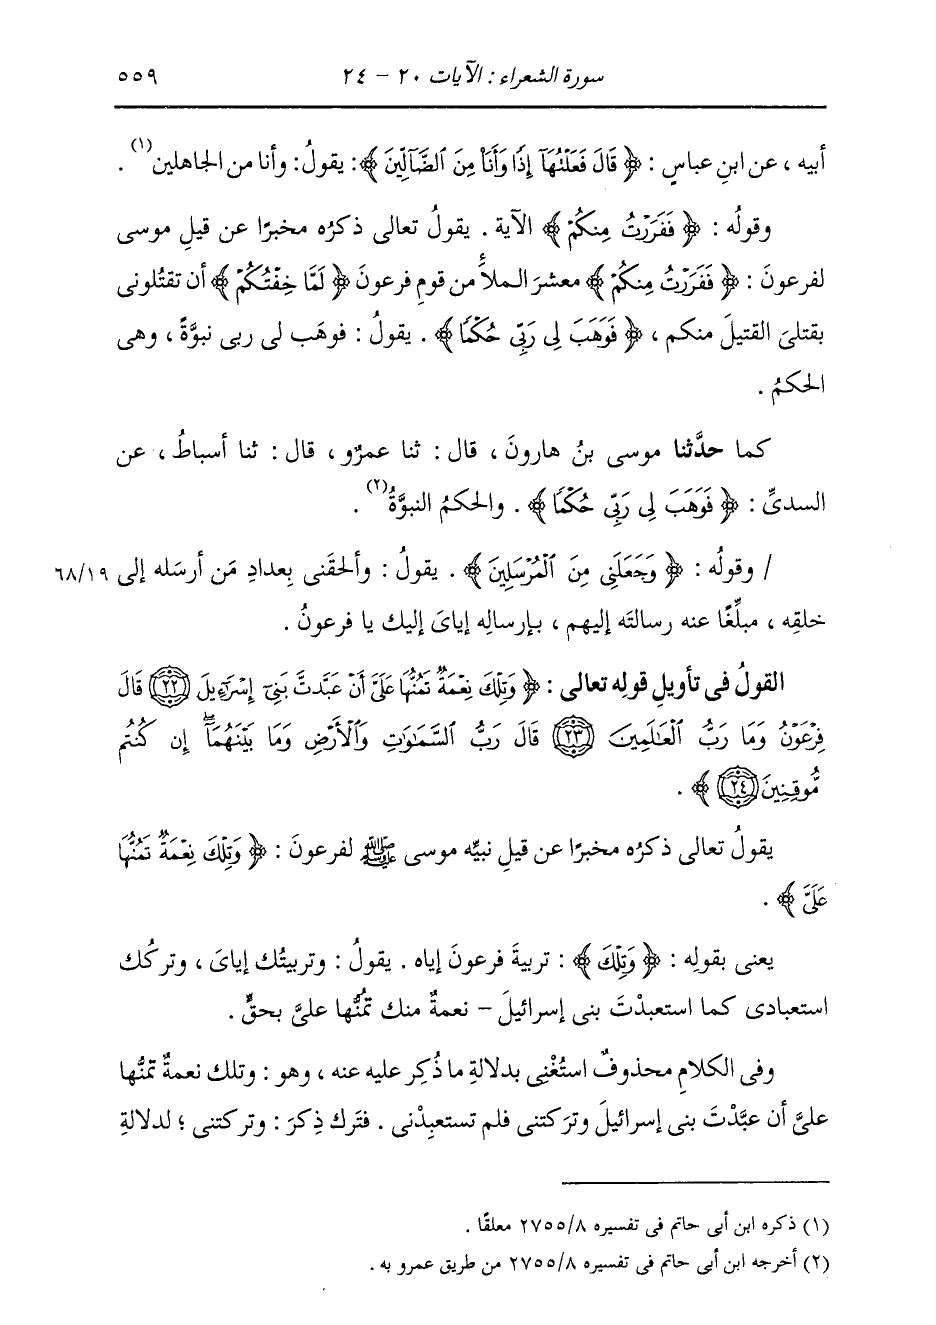 سورة الشعراء : الآيات ٢٠ - ٢٤ ٥٥٩
أبيه ، عن ابنِ عباسٍ : ﴿ قَالَ فَعَلْتُهَآ إِذًا وَأَنَا۠ مِنَ ٱلضَّآلِّينَ ﴾: يقولُ: وأنا من الجاهلين(١) .
وقولُه : ﴿ فَفَرَرْتُ مِنكُمْ ﴾ الآية . يقولُ تعالى ذكرُه مخبرًا عن قيلِ موسى
لفرعونَ : ﴿ فَفَرَرْتُ مِنكُمْ ﴾ معشرَ الملأَ من قومِ فرعونَ ﴿ لَمَّا خِفْتُكُمْ ﴾ أن تقتُلونى
بقتلىَ القتيلَ منكم ، ﴿ فَوَهَبَ لِى رَبِّى حُكْمًا ﴾ . يقولُ : فوهَب لى ربى نبوَّةً ، وهى
الحكمُ .
كما حدَّثنا موسى بنُ هارونَ ، قال : ثنا عمرٌو ، قال : ثنا أسباطُ ، عن
السدىِّ : ﴿ فَوَهَبَ لِى رَبِّى حُكْمًا ﴾ . والحكمُ النبوَّةُ(٢) .
/ وقولُه : ﴿ وَجَعَلَنِى مِنَ ٱلْمُرْسَلِينَ ﴾ . يقولُ : وألحقَنى بِعدادِ مَن أرسَله إلى ٦٨/١٩
خلقِه ، مبلِّغًا عنه رسالتَه إليهم ، بإرسالِه إياىَ إليك يا فرعونُ .
القولُ فى تأويلِ قولِه تعالى : ﴿ وَتِلْكَ نِعْمَةٌ تَمُنُّهَا عَلَىَّ أَنْ عَبَّدتَّ بَنِىٓ إِسْرَٰٓءِيلَ ٢٢ قَالَ
فِرْعَوْنُ وَمَا رَبُّ ٱلْعَٰلَمِينَ ٢٣ قَالَ رَبُّ ٱلسَّمَٰوَٰتِ وَٱلْأَرْضِ وَمَا بَيْنَهُمَآ ۖ إِن كُنتُم
مُّوقِنِينَ ٢٤ ﴾ .
يقولُ تعالى ذكرُه مخبرًا عن قيلِ نبيِّه موسى ﷺ لفرعونَ : ﴿ وَتِلْكَ نِعْمَةٌ تَمُنُّهَا
عَلَىَّ ﴾ .
يعنى بقولِه : ﴿ وَتِلْكَ ﴾ : تربيةَ فرعونَ إياه . يقولُ : وتربيتُك إياىَ ، وتركُك
استعبادى كما استعبدْتَ بنى إسرائيلَ - نعمةٌ منك تمُنُّها علىَّ بحقٍّ .
وفى الكلامِ محذوفٌ استُغْنِى بدلالةِ ما ذُكِر عليه عنه ، وهو : وتلك نعمةٌ تمنُّها
علىَّ أن عبَّدْتَ بنى إسرائيلَ وترَكتنى فلم تستعبِدْنى . فتَرك ذِكرَ : وتركتنى ؛ لدلالةِ
(١) ذكره ابن أبى حاتم فى تفسيره ٢٧٥٥/٨ معلقًا .
(٢) أخرجه ابن أبى حاتم فى تفسيره ٢٧٥٥/٨ من طريق عمرو به .